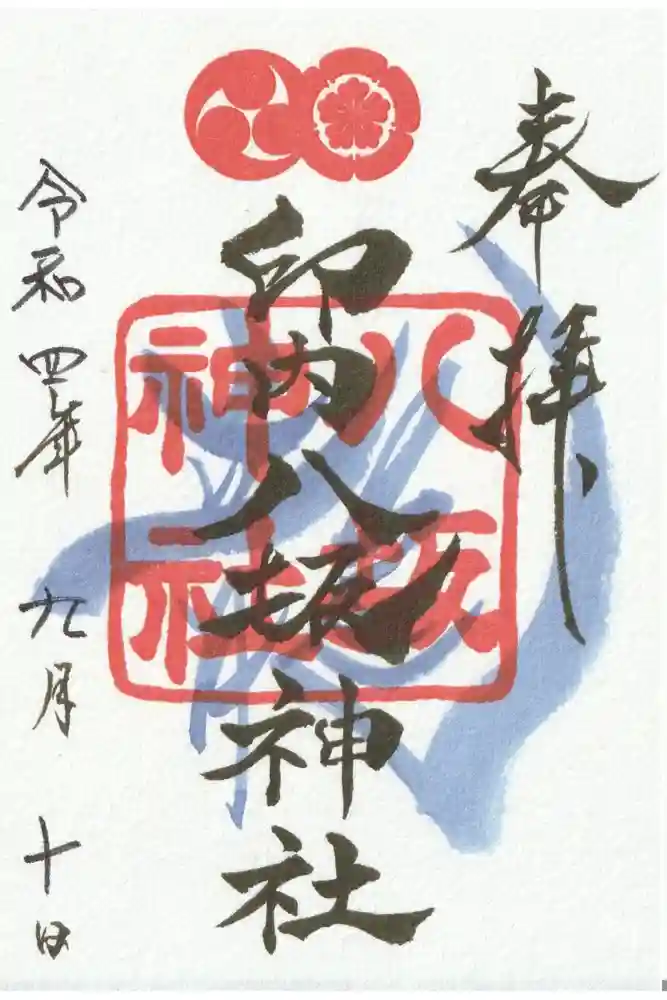 奉拝
印内八坂神社
八坂
神社
令和四年九月十日